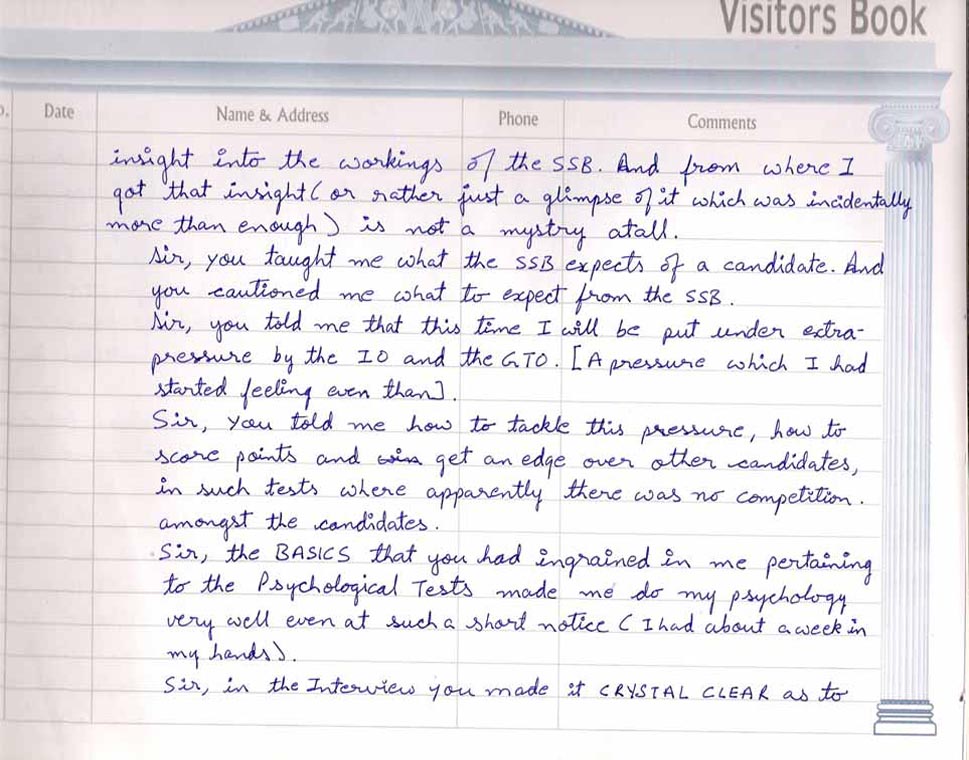 Visitors Book
Date Name & Address Phone Comments
insight into the workings of the SSB. And from where I
got that insight (or rather just a glimpse of it which was incidentally
more than enough) is not a mystry atall.
Sir, you taught me what the SSB expects of a candidate. And
you cautioned me what to expect from the SSB.
Sir, you told me that this time I will be put under extra-
pressure by the IO and the GTO. [A pressure which I had
started feeling even than].
Sir, you told me how to tackle this pressure, how to
score points and win get an edge over other candidates,
in such tests where apparently there was no competition.
amongst the candidates.
Sir, the BASICS that you had ingrained in me pertaining
to the Psychological Tests made me do my psychology
very well even at such a short notice (I had about a week in
my hands).
Sir, in the Interview you made it CRYSTAL CLEAR as to